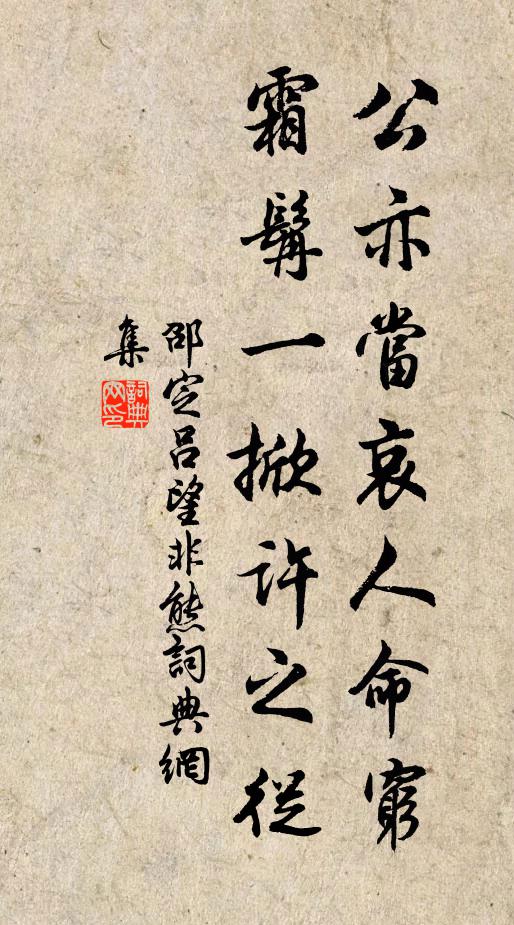 公亦當哀人命窮
霜髯一掀許之從
邵定呂望非熊詞典網
集
詞典網印